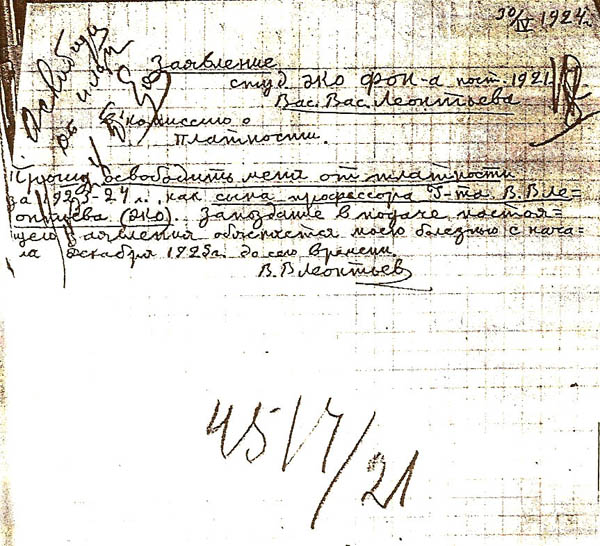 30/IV 1924 г.
Заявление
студ ЭКО ФОН-а пост. 1921
Вас. Вас. Леонтьева
В комиссию о
платности.
Прошу освободить меня от платности
за 1923-24 г. как сына профессора Г-та В. В Ле-
онтьева (ЭКО). Запоздание в подаче настоя=
щего заявления объясняется моею болезнью с нача=
ла декабря 1923г. до сего времени.
В. В Леонтьев
Освободить
от платы
4517/21